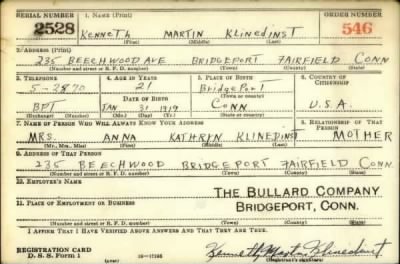 SERIAL NUMBER 1. NAME (Print) ORDER NUMBER
2528 KENNETH MARTIN KLINEDINST 546
(First) (Middle) (Last)
2. ADDRESS (Print)
235 BEECHWOOD AVE BRIDGEPORT FAIRFIELD CONN
(Number and street or R. F. D. number) (Town) (County) (State)
3. TELEPHONE 4. AGE IN YEARS 5. PLACE OF BIRTH 6. COUNTRY OF CITIZENSHIP
5-2870 21 BridgePort
DATE OF BIRTH (Town or county)
BPT JAN 31 1919 CONN U.S.A.
(Exchange) (Number) (Mo.) (Day) (Yr.) (State or country)
7. NAME OF PERSON WHO WILL ALWAYS KNOW YOUR ADDRESS 8. RELATIONSHIP OF THAT PERSON
MRS. ANNA KATHRYN KLINEDINST MOTHER
(Mr., Mrs., Miss) (First) (Middle) (Last)
9. ADDRESS OF THAT PERSON
235 BEECHWOOD BRIDGEPORT FAIRFIELD CONN
(Number and street or R. F. D. number) (Town) (County) (State)
10. EMPLOYER'S NAME
THE BULLARD COMPANY
11. PLACE OF EMPLOYMENT OR BUSINESS
BRIDGEPORT, CONN.
(Number and street or R. F. D. number) (Town) (County) (State)
I AFFIRM THAT I HAVE VERIFIED ABOVE ANSWERS AND THAT THEY ARE TRUE.
REGISTRATION CARD
D. S. S. Form 1 (over) 16—17105 Kenneth Martin Klinedinst
(Registrant's signature)